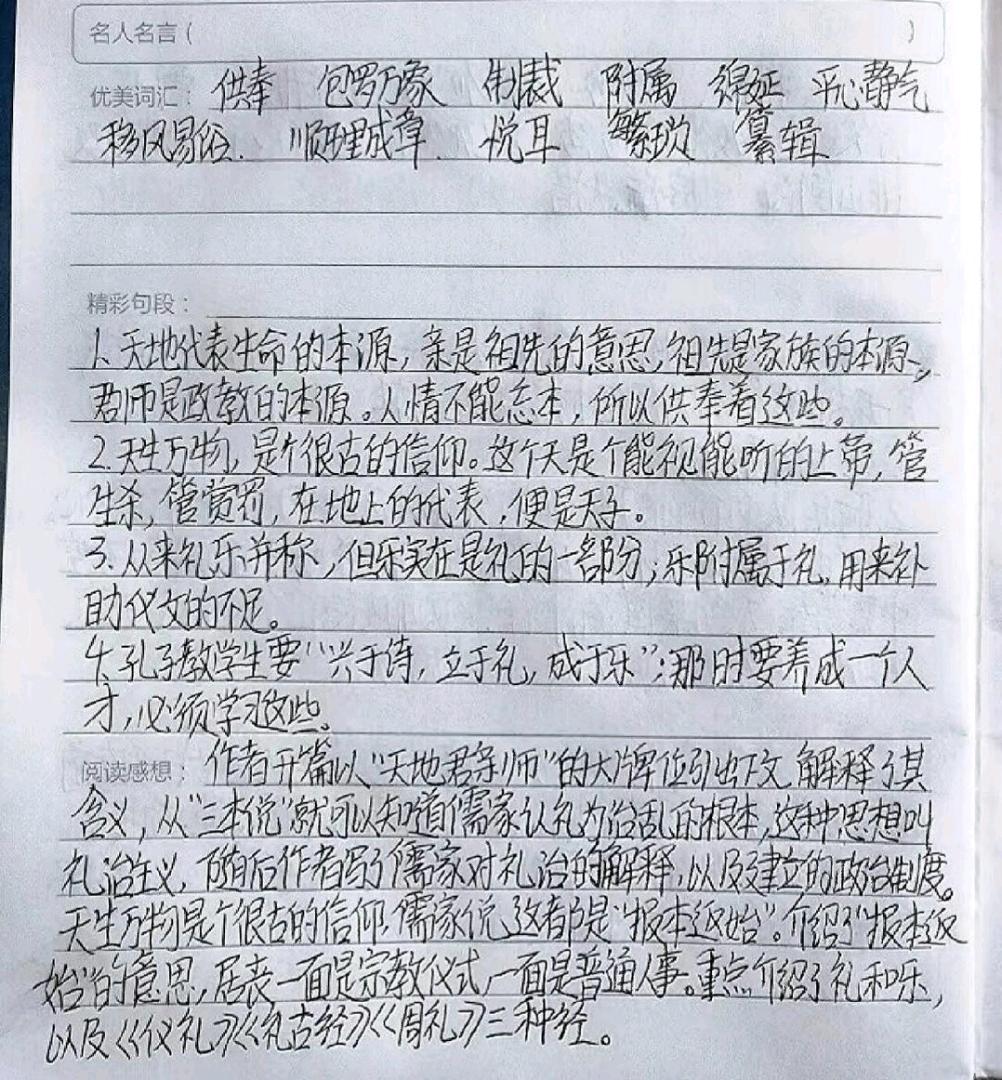 名人名言（ ）
优美词汇：供奉 包罗万象 制裁 附属 绵延 平心静气
移风易俗. 顺理成章. 悦耳 繁琐 纂辑
精彩句段：
1.天地代表生命的本源，亲是祖先的意思，祖先是家族的本源，
君师是政教的本源。人情不能忘本，所以供奉着这些。
2.天生万物，是个很古的信仰。这个天是个能视能听的上帝，管
生杀，管赏罚，在地上的代表，便是天子。
3.从来礼乐并称，但乐实在是礼的一部分；乐附属于礼，用来补
助仪文的不足。
4.孔子教学生要“兴于诗，立于礼，成于乐”；那时要养成一个人
才，必须学习这些。
阅读感想：作者开篇以“天地君亲师”的大牌位引出下文，解释了其
含义，从“三本说”就可以知道儒家认礼为治乱的根本，这种思想叫
礼治主义，随后作者写了儒家对礼治的解释，以及建立的政治制度。
天生万物是个很古的信仰，儒家说这都是“报本返始”。介绍了“报本返
始”的意思，居丧一面是宗教仪式，一面是普通人事。重点介绍了礼和乐，
以及《仪礼》《礼古经》《周礼》三种经。